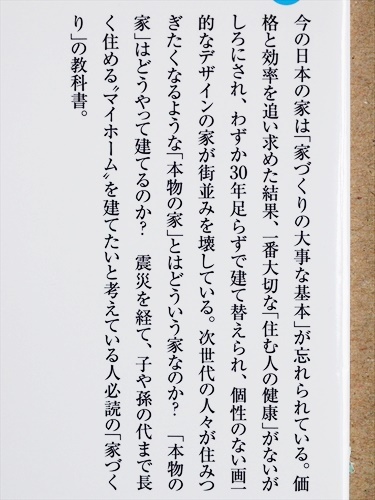 今の日本の家は「家づくりの大事な基本」が忘れられている。価
格と効率を追い求めた結果、一番大切な「住む人の健康」がないが
しろにされ、わずか30年足らずで建て替えられ、個性のない画一
的なデザインの家が街並みを壊している。次世代の人々が住みつ
ぎたくなるような「本物の家」とはどういう家なのか?　「本物の
家」はどうやって建てるのか?　震災を経て、子や孫の代まで長
く住める〝マイホーム〟を建てたいと考えている人必読の「家づく
り」の教科書。